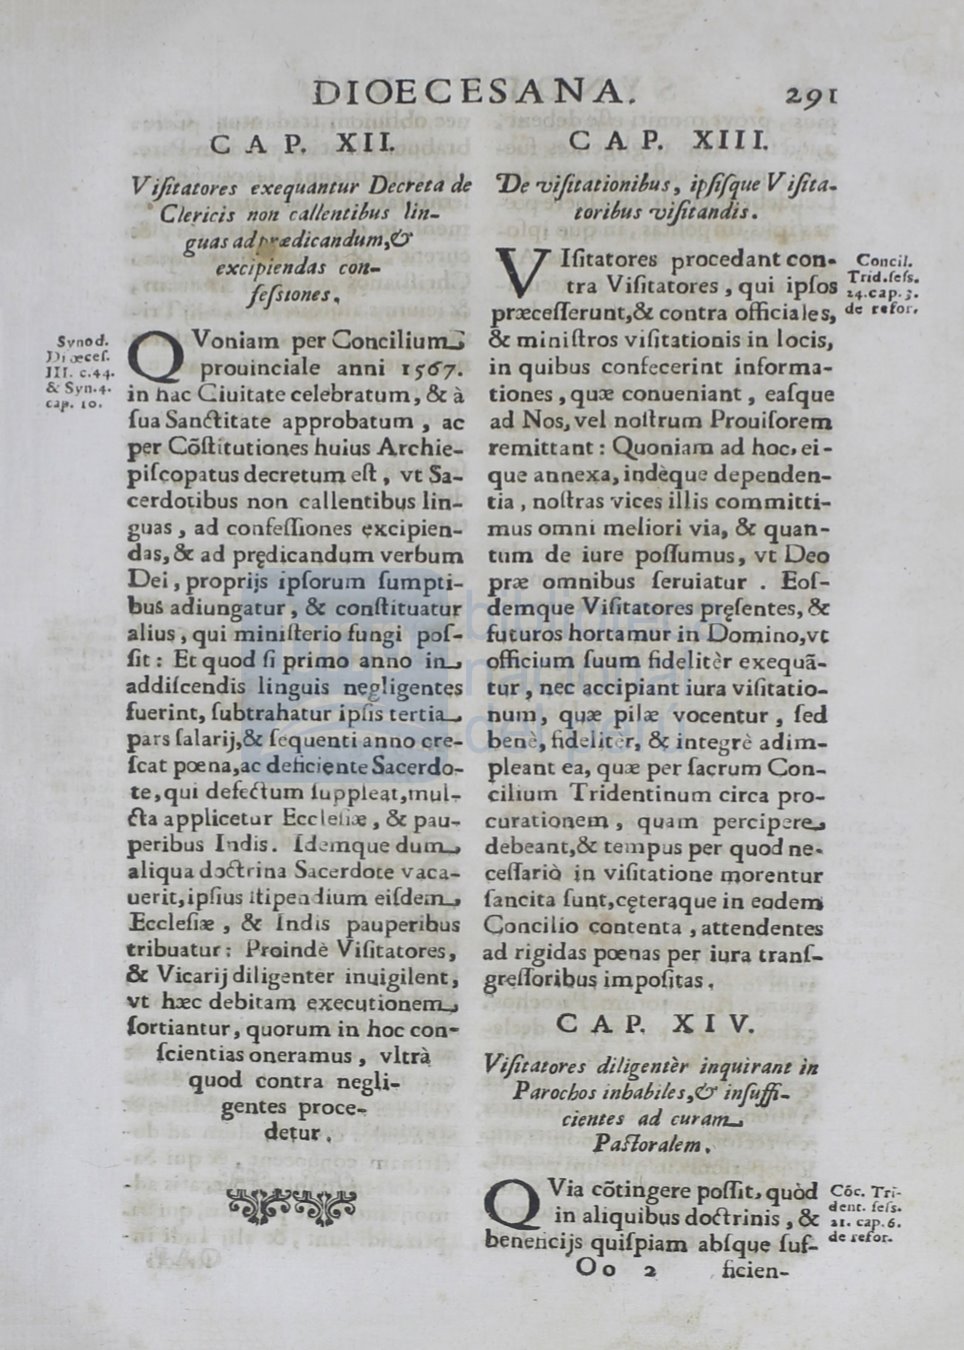 DIOECESANA. 291
CAP. XII.
Viſitatores exequantur Decreta de
Clericis non callentibus lin-
guas ad prædicandum,&
excipiendas con-
feſsiones.
Synod.
Diœceſ.
III. c.44.
& Syn.4.
cap. 10.
QVoniam per Concilium
prouinciale anni 1567.
in hac Ciuitate celebratum, & à
ſua Sanctitate approbatum , ac
per Cõſtitutiones huius Archie-
piſcopatus decretum eſt , vt Sa-
cerdotibus non callentibus lin-
guas , ad confeſſiones excipien-
das,& ad prędicandum verbum
Dei , proprijs ipſorum ſumpti-
bus adiungatur , & conſtituatur
alius , qui miniſterio fungi poſ-
ſit : Et quod ſi primo anno in
addiſcendis linguis negligentes
fuerint, ſubtrahatur ipſis tertia
pars ſalarij,& ſequenti anno cre-
ſcat pœna,ac deficiente Sacerdo-
te,qui defectum ſuppleat,mul-
cta applicetur Eccleſiæ , & pau-
peribus Indis. Idemque dum
aliqua doctrina Sacerdote vaca-
uerit,ipſius ſtipendium eiſdem
Eccleſiæ , & Indis pauperibus
tribuatur : Proindè Viſitatores,
& Vicarij diligenter inuigilent,
vt hæc debitam executionem
ſortiantur, quorum in hoc con-
ſcientias oneramus , vltrà
quod contra negli-
gentes proce-
detur .
CAP. XIII.
De viſitationibus, ipſiſque Viſita-
toribus viſitandis.
VIſitatores procedant con-
tra Viſitatores , qui ipſos
præceſſerunt,& contra officiales,
& miniſtros viſitationis in locis,
in quibus confecerint informa-
tiones , quæ conueniant , eaſque
ad Nos, vel noſtrum Prouiſorem
remittant : Quoniam ad hoc, ei-
que annexa, indèque dependen-
tia , noſtras vices illis committi-
mus omni meliori via, & quan-
tum de iure poſſumus, vt Deo
præ omnibus ſeruiatur . Eoſ-
demque Viſitatores pręſentes, &
futuros hortamur in Domino,vt
officium ſuum fidelitèr exequã-
tur , nec accipiant iura viſitatio-
num, quæ pilæ vocentur , ſed
benè, fidelitèr, & integrè adim-
pleant ea, quæ per ſacrum Con-
cilium Tridentinum circa pro-
curationem , quam percipere
debeant,& tempus per quod ne-
ceſſariò in viſitatione morentur
ſancita ſunt,cęteraque in eodem
Concilio contenta , attendentes
ad rigidas pœnas per iura tranſ-
greſſoribus impoſitas.
Concil.
Trid.ſeſs.
24.cap.3.
de refor.
CAP. XIV.
Viſitatores diligentèr inquirant in
Parochos inhabiles,& inſuffi-
cientes ad curam
Paſtoralem.
QVia cõtingere poſſit, quòd
in aliquibus doctrinis , &
beneficijs quiſpiam abſque ſuf-
Cõc. Tri-
dent. ſeſs.
21. cap.6.
de refor.
Oo 2 ficien-
biblioteca
nacional
del perú